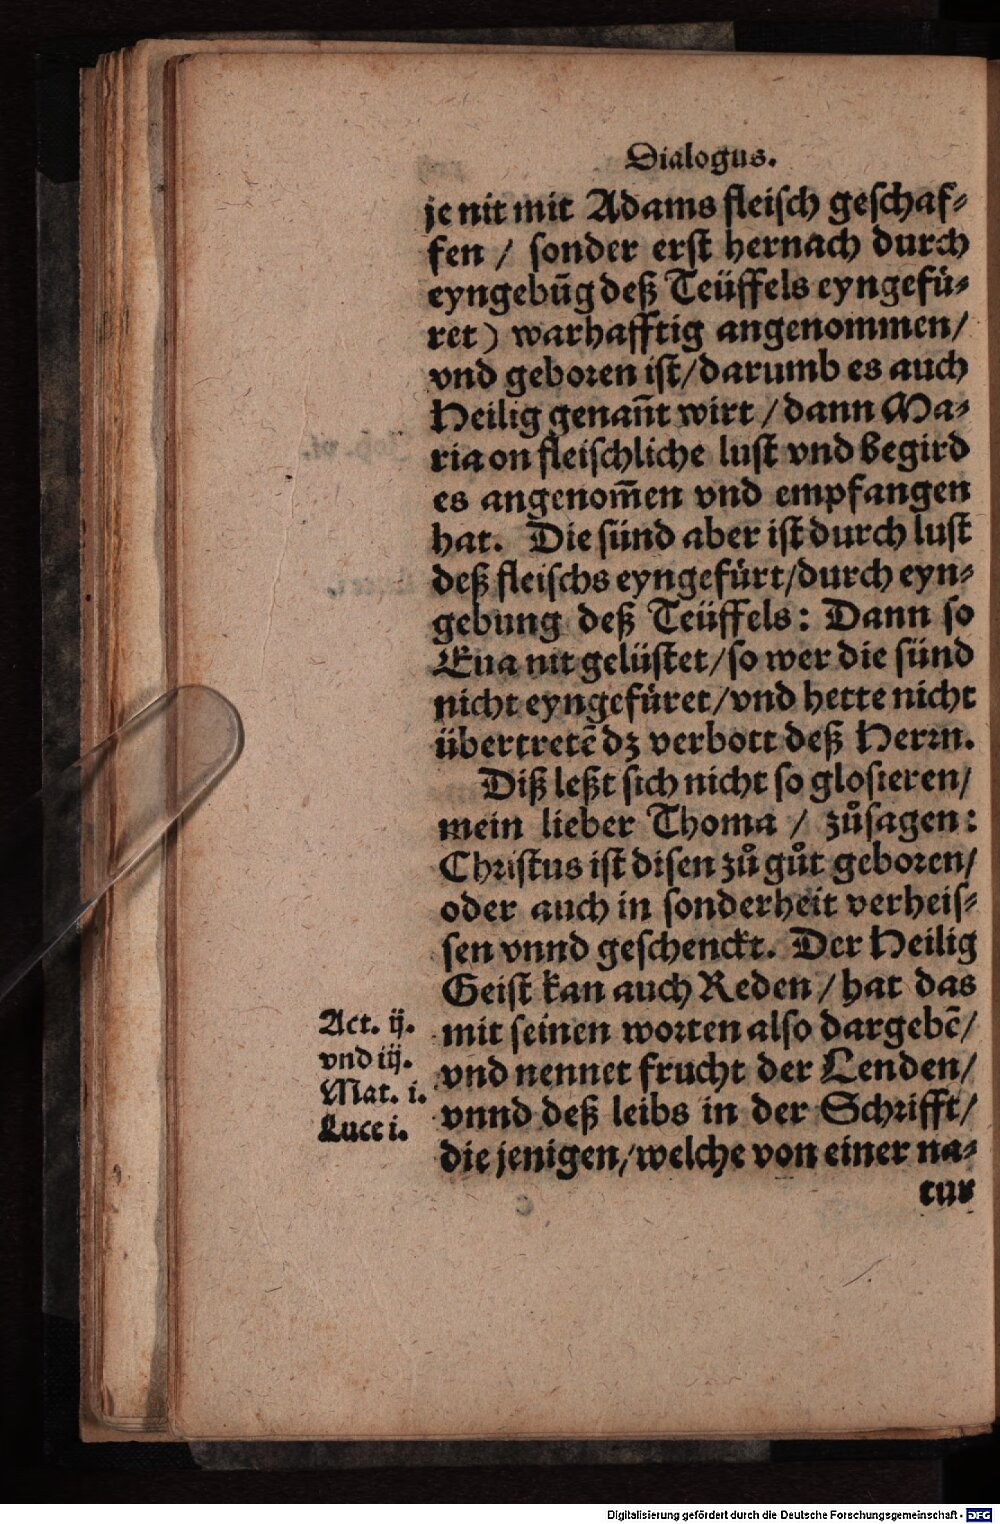 Dialogus.
je nit mit Adams fleisch geschaf⸗
fen / sonder erst hernach durch
eyngebūg deß Teüffels eyngefuͤ⸗
ret) warhafftig angenommen/
vnd geboren ist/darumb es auch
Heilig genañt wirt / dann Ma⸗
ria on fleischliche lust vnd begird
es angenom̃en vnd empfangen
hat. Die sünd aber ist durch lust
deß fleischs eyngefuͤrt/durch eyn⸗
gebung deß Teüffels: Dann so
Eua nit gelüstet/so wer die sünd
nicht eyngefuͤret/vnd hette nicht
übertretē dz verbott deß Herrn.
Diß leßt sich nicht so glosieren/
mein lieber Thoma / zuͦsagen:
Christus ist disen zuͦ guͦt geboren/
oder auch in sonderheit verheis⸗
sen vnnd geschenckt. Der Heilig
Geist kan auch Reden / hat das
mit seinen worten also dargebē/
vnd nennet frucht der Lenden/
vnnd deß leibs in der Schrifft/
die jenigen/welche von einer na⸗
tur
Act. ij.
vnd iij.
Mat. i.
Luce i.
Digitalisierung gefördert durch die Deutsche Forschungsgemeinschaft - DFG